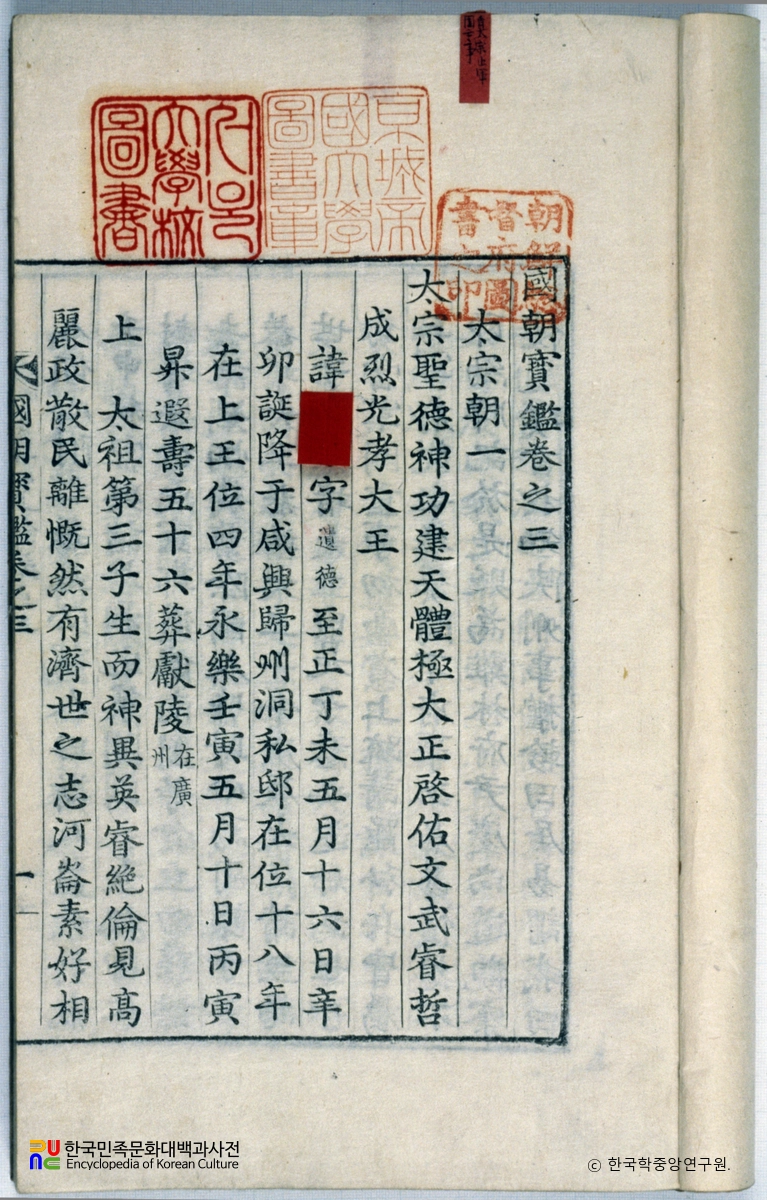 國朝寶鑑卷之三
太宗朝一
太宗聖德神功建天體極大正啓佑文武睿哲
成烈光孝大王
諱 字遺德至正丁未五月十六日辛
卯誕降于咸興歸州洞私邸在位十八年
在上王位四年永樂壬寅五月十日丙寅
昇遐壽五十六葬獻陵在廣州
上 太祖第三子生而神異英睿絶倫見高
麗政散民離慨然有濟世之志河崙素好相
國朝寶鑑卷之三 一
朝鮮總督府圖書之印
京城帝國大學圖書章
大學校圖書
한국민족문화대백과사전
Encyclopedia of Korean Culture
© 한국학중앙연구원.